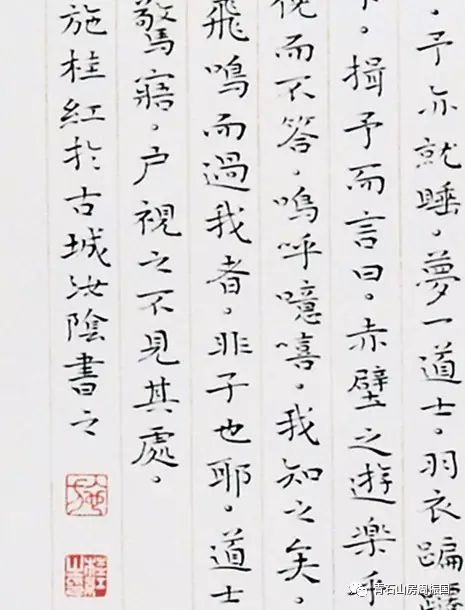 。予亦就睡。夢一道士。羽衣蹁
。揖予而言曰。赤壁之遊樂乎
俛而不答。嗚呼噫嘻。我知之矣。
飛鳴而過我者。非子也耶。道士
驚寤。户視之不見其處。
施桂紅於古城汝陰書之
青石山房周振国